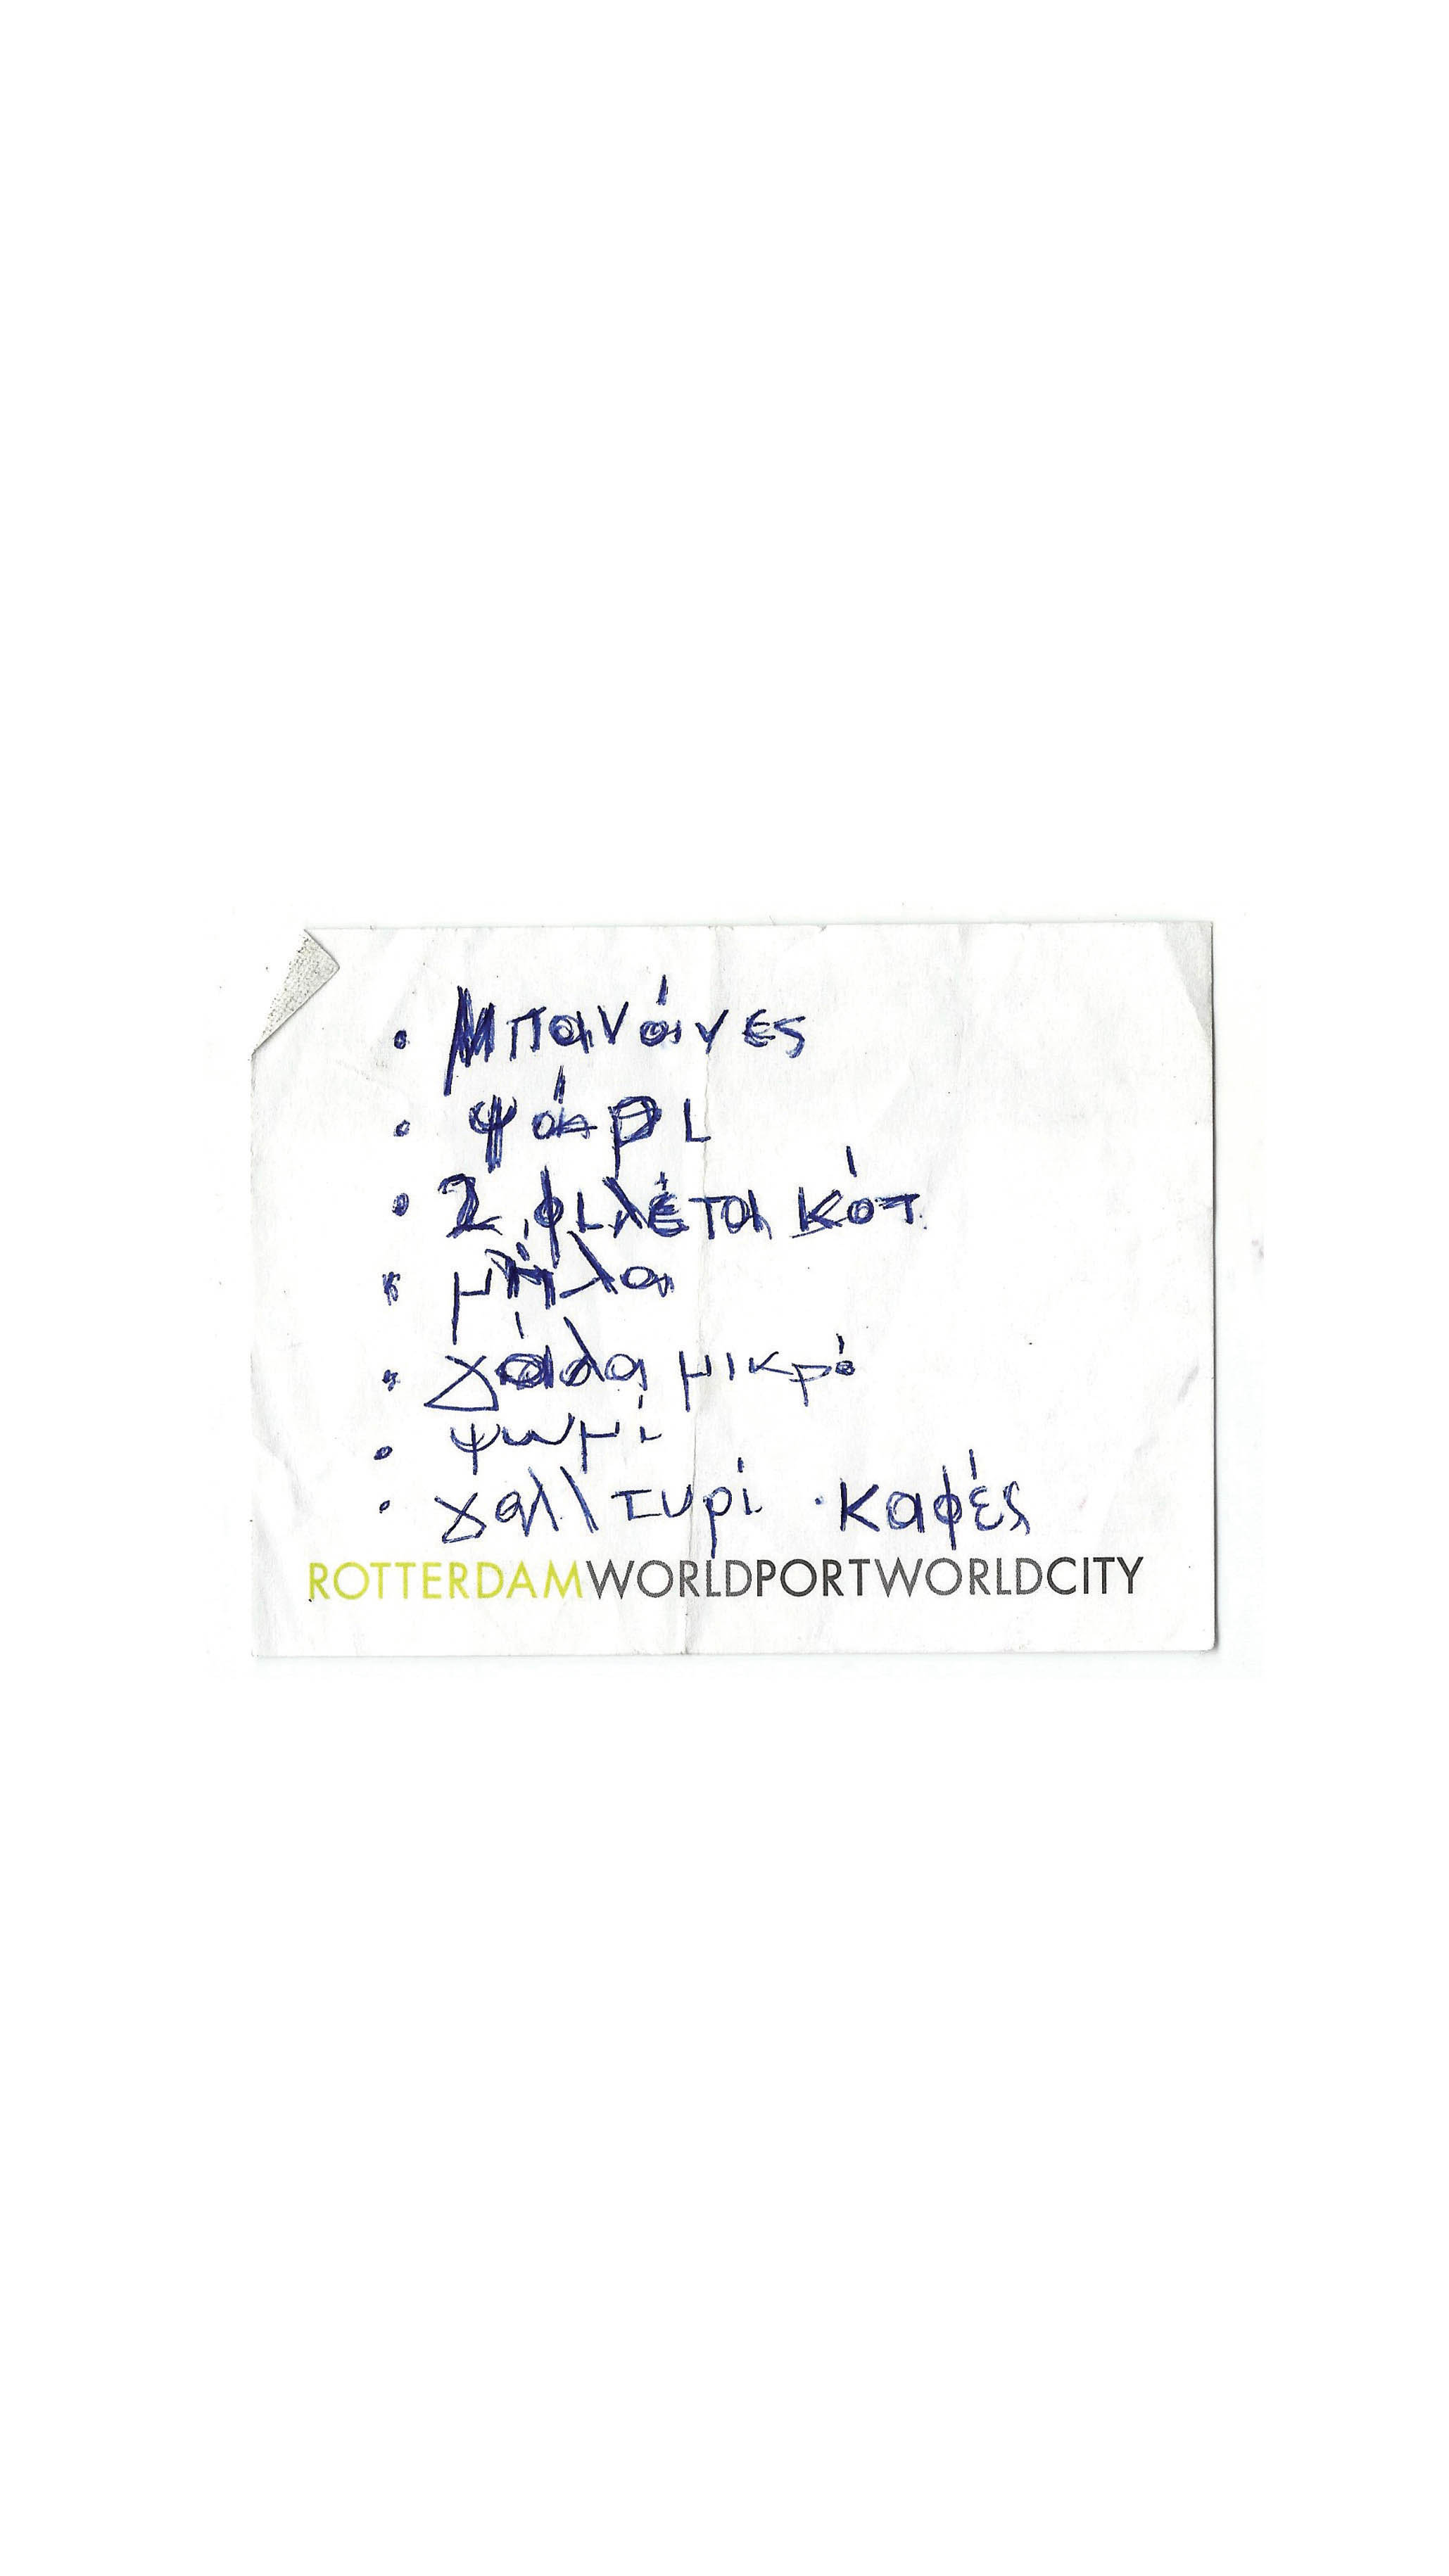 • Μπανάνες
• ψάρι
• 2 φιλέτα κότ.
• μήλα
• γάλα μικρό
• ψωμί
• γαλλ τυρί • καφές
ROTTERDAMWORLDPORTWORLDCITY